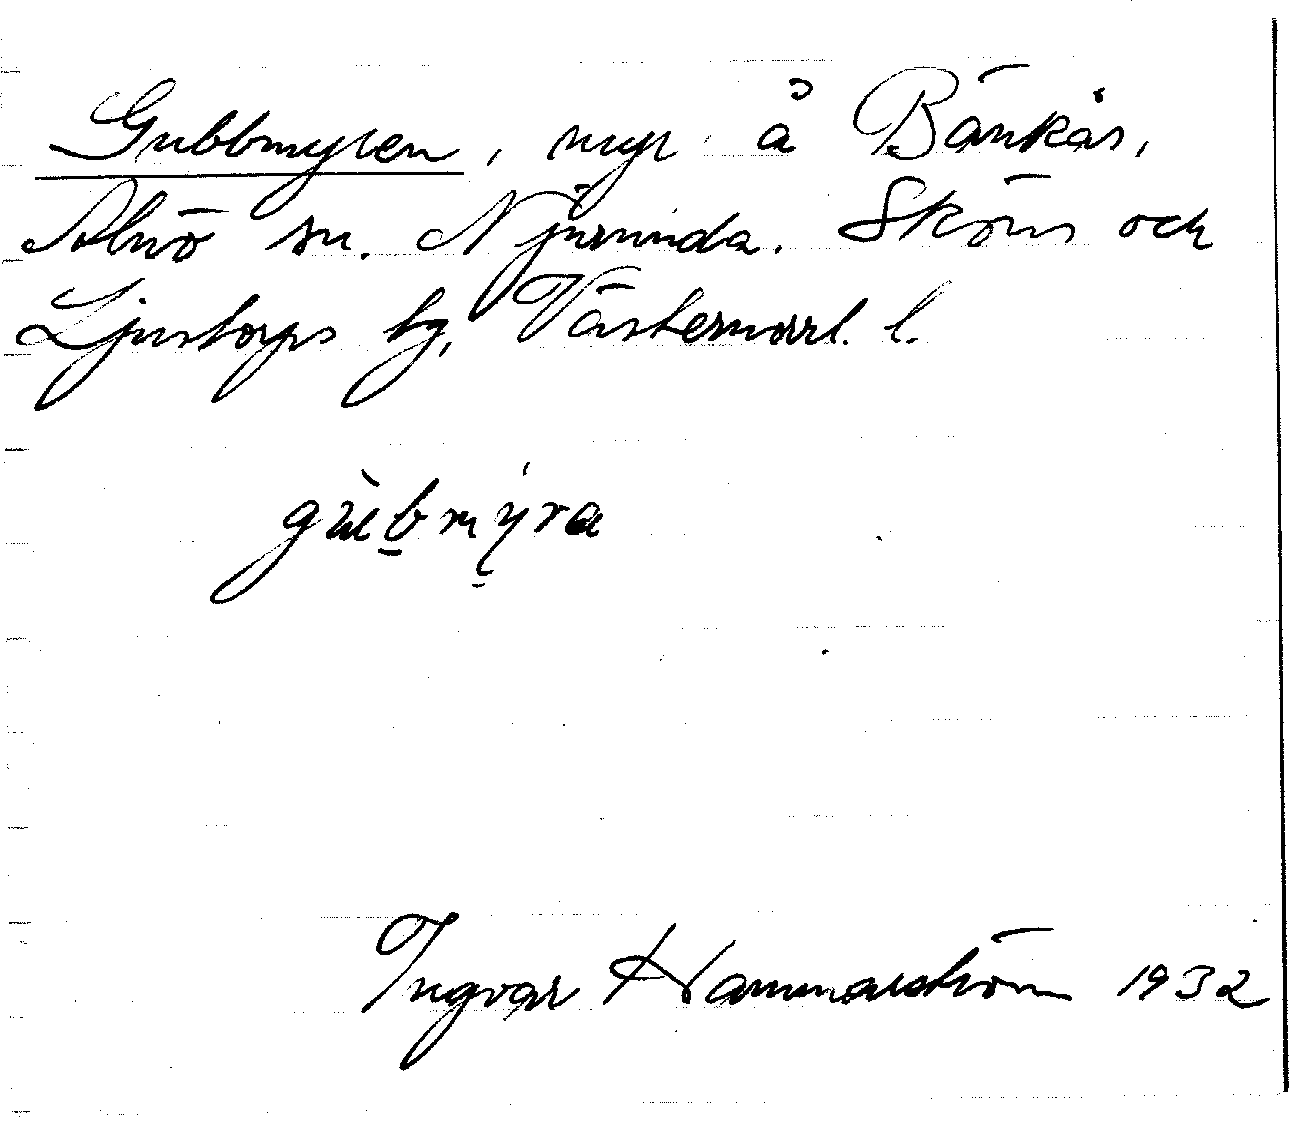 Gubbmyren, myr å Bänkås,
Alnö sn. Njurunda. Sköns och
Ljustorps tg, Västernorrl. l.
gùbmýra
Ingvar Hammarström 1932